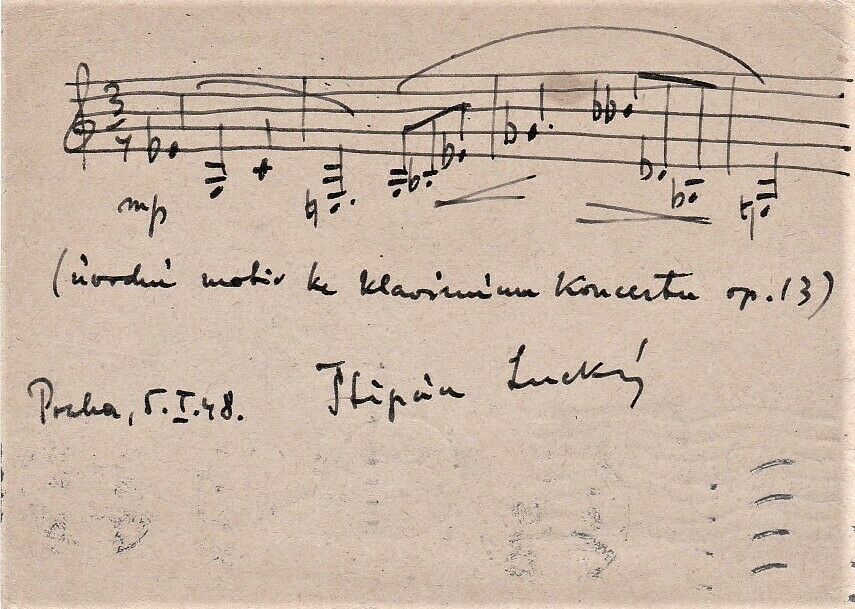 3/4
mp
(úvodní motiv ke klavírnímu koncertu op.13)
Praha, 5.I.48. Štěpán Lucký